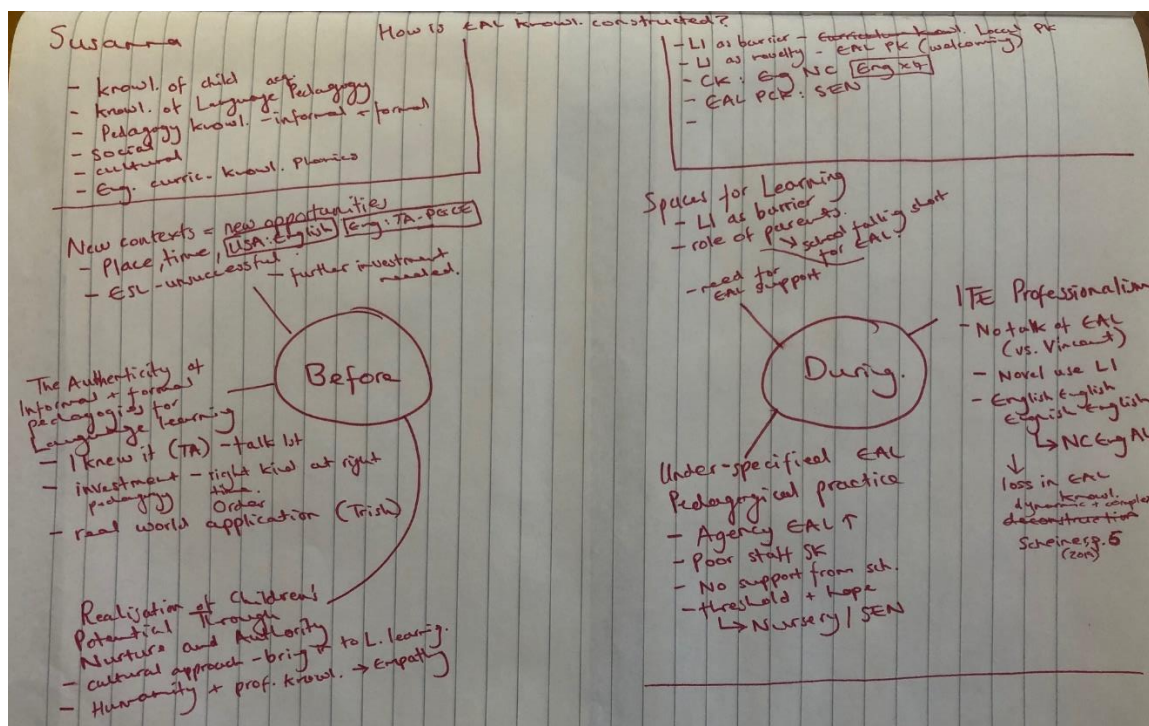 Susanna
How is EAL knowl. constructed?
- knowl. of child acq.
- knowl. of Language Pedagogy
- Pedagogy knowl. - informal + formal
- social
- cultural
- Eng. curric. knowl. Phonics
- L1 as barrier - Curriculum knowl. Local PK
- L1 as novelty - EAL PK (welcoming)
- CK: Eng NC Eng x4
- EAL PCK: SEN
-
New contexts = new opportunities
- Place, time, USA: English Eng: TA-PGCE
- ESL - unsuccessful - further investment
needed.
Before
The Authenticity of
Informal + formal
pedagogies for
Language learning
- I knew it (TA) - talk 1st
- investment - right kind at right
pedagogy time.
order
- real world application (Trish)
Realisation of Children's
Potential Through
Nurture and Authority
- cultural approach - bring to L. learnig.
- Humanity + prof. knowl. → Empathy
Spaces for Learning
- L1 as barrier
- role of parents.
↳ school falling short
for EAL?
- need for
EAL support
During.
ITE Professionalism
- No talk of EAL
(vs. Vincent)
- Novel use L1
- English English
English English
↳ NC Eng AL
↓
loss in EAL
knowl.
dynamic + complex
deconstruction
Under-specified EAL
Pedagorgical practice
- Agency EAL ↑
- Poor staff SK
- No support from sch.
- threshold + hope
↳ Nursery / SEN